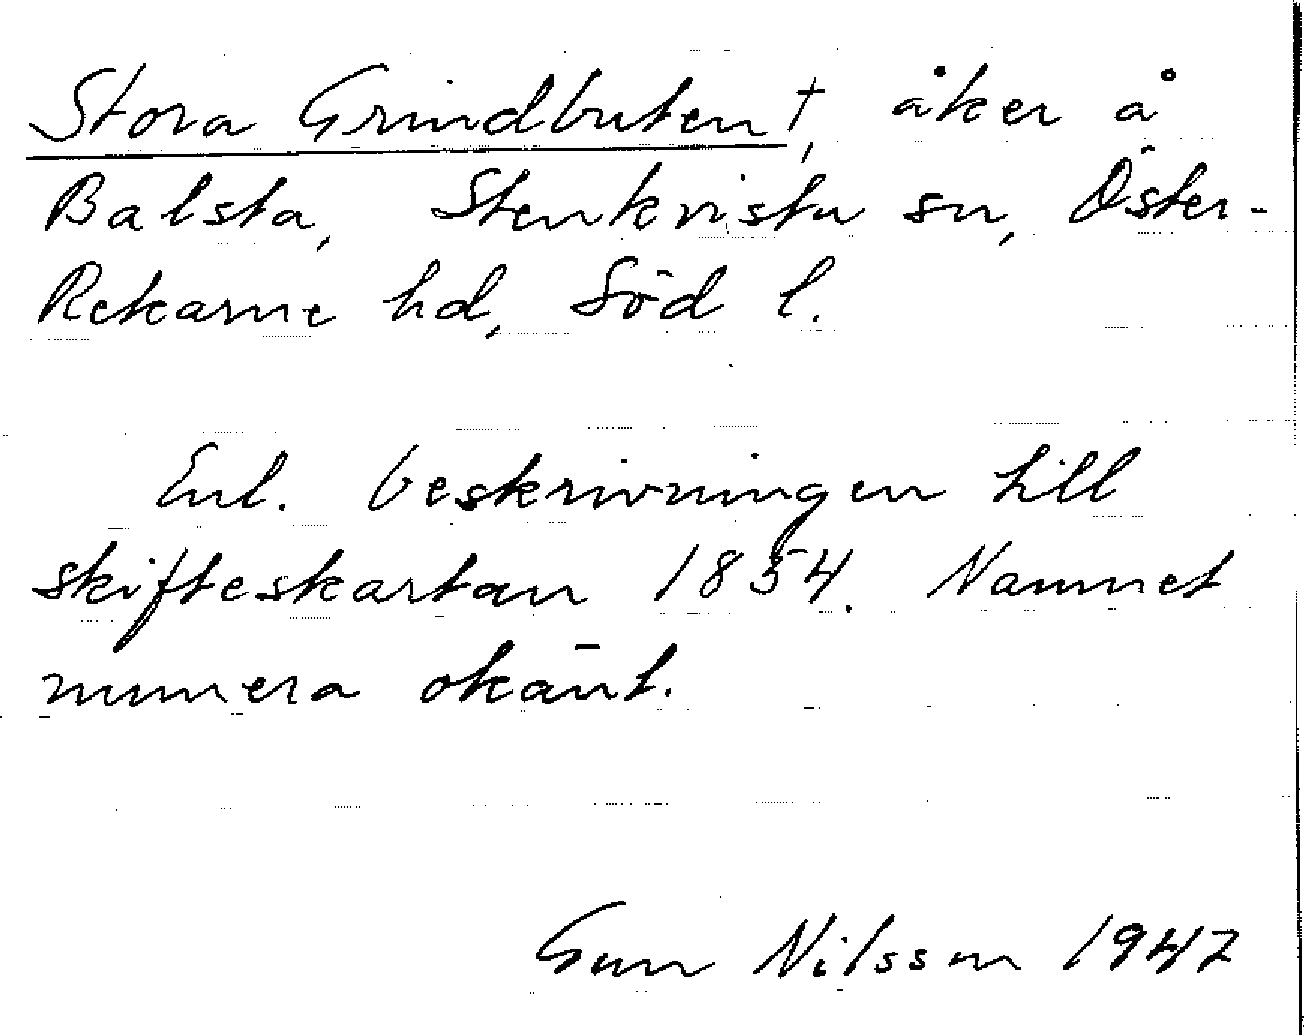 Stora Grindbuten†, åker å
Balsta, Stenkvista sn, Öster-
Rekarne hd, Söd l.
Enl. beskrivningen till
skifteskartan 1854. Namnet
numera okänt.
Gun Nilsson 1947